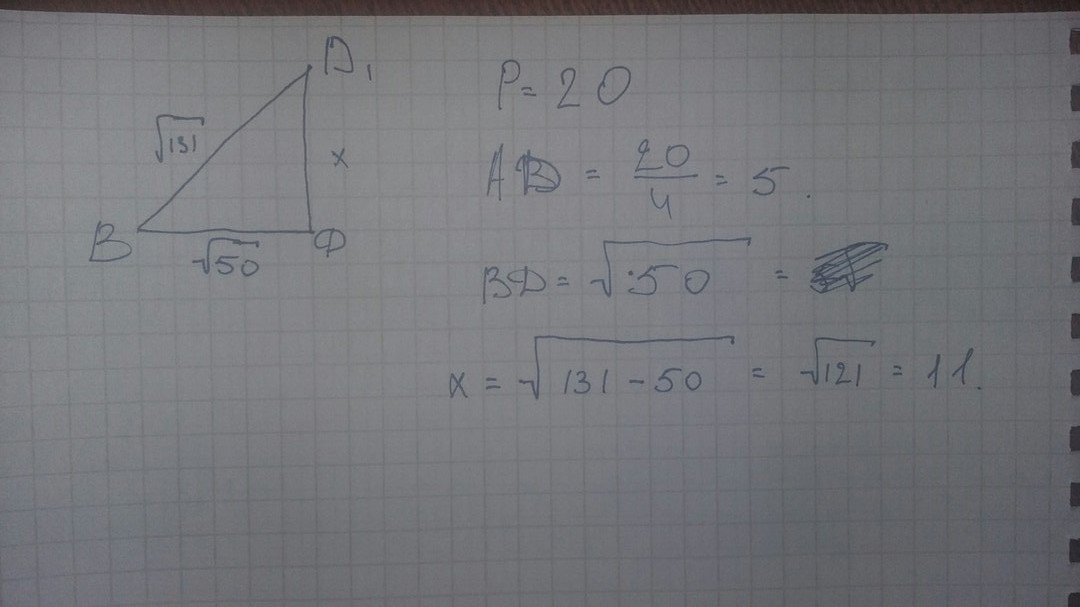 D₁
√131
x
B
√50
D
P = 20
AD = 20/4 = 5.
BD = √50 =
x = √131 - 50 = √121 = 11.